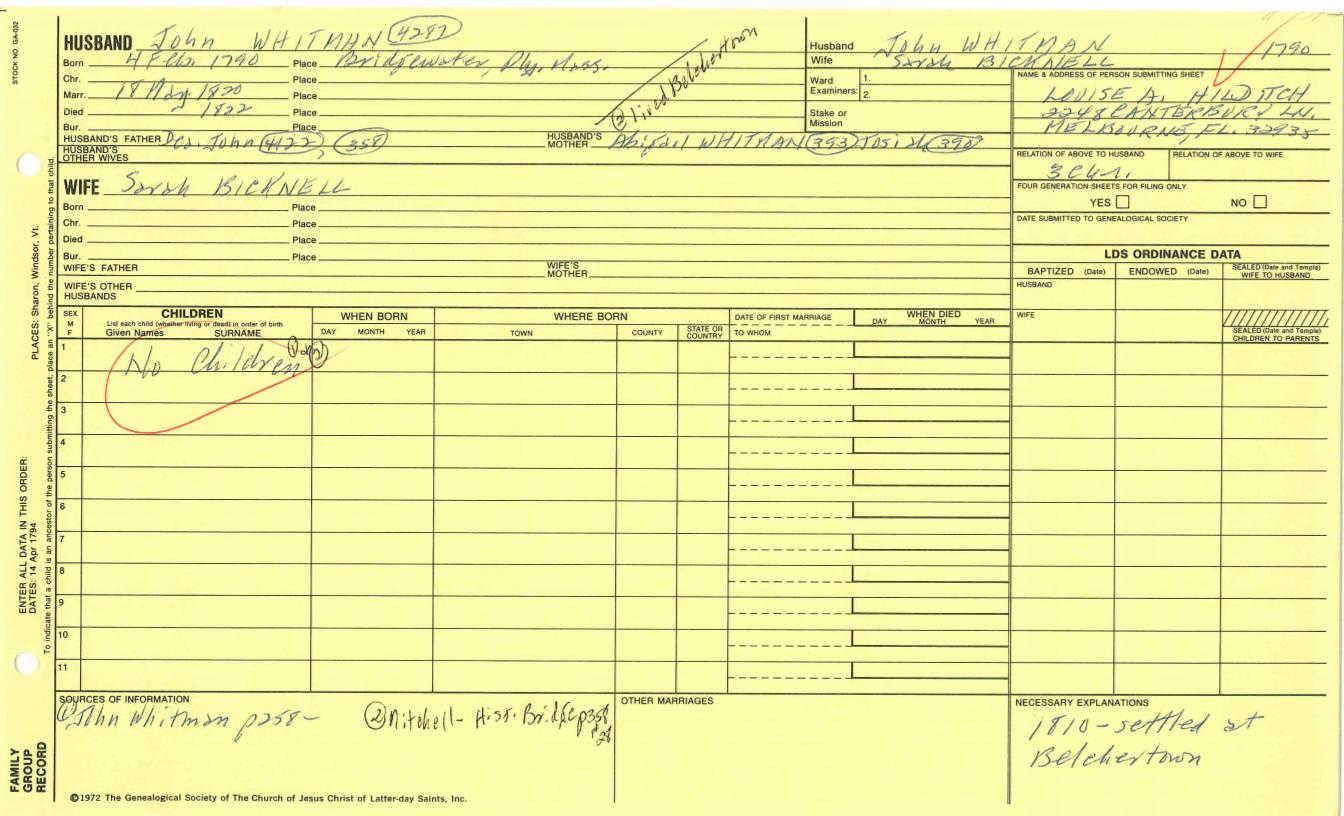 STOCK NO. GA-032
HUSBAND John WHITMAN 4287
Born 4 Feb. 1790 Place Bridgewater, Ply. Mass.
Chr. Place
Marr. 18 May 1820 Place
Died 1822 Place
Bur. Place
② lived Belchertown
HUSBAND'S FATHER Dea. John 4122, 358
HUSBAND'S MOTHER Abigail WHITMAN 393 Josiah 390
HUSBAND'S OTHER WIVES
WIFE Sarah BICKNELL
Born Place
Chr. Place
Died Place
Bur. Place
WIFE'S FATHER
WIFE'S MOTHER
WIFE'S OTHER HUSBANDS
Husband John WHITMAN 1790
Wife Sarah BICKNELL
Ward Examiners: 1.
2.
Stake or Mission
NAME & ADDRESS OF PERSON SUBMITTING SHEET
LOUISE A. HILDITCH
2248 CANTERBURY LN.
MELBOURNE, FL. 32935
RELATION OF ABOVE TO HUSBAND
RELATION OF ABOVE TO WIFE
FOUR GENERATION SHEETS FOR FILING ONLY
YES NO
DATE SUBMITTED TO GENEALOGICAL SOCIETY
LDS ORDINANCE DATA
BAPTIZED (Date) ENDOWED (Date) SEALED (Date and Temple) WIFE TO HUSBAND
HUSBAND
WIFE
SEALED (Date and Temple) CHILDREN TO PARENTS
SEX M F
CHILDREN
List each child (whether living or dead) in order of birth
Given Names SURNAME
WHEN BORN
DAY MONTH YEAR
WHERE BORN
TOWN COUNTY STATE OR COUNTRY
DATE OF FIRST MARRIAGE
TO WHOM
WHEN DIED
DAY MONTH YEAR
1
No Children ① ②
2
3
4
5
6
7
8
9
10
11
SOURCES OF INFORMATION
① John Whitman p258 -
② Mitchell - Hist. Bridge p358 #28
OTHER MARRIAGES
NECESSARY EXPLANATIONS
1810 - settled at
Belchertown
©1972 The Genealogical Society of The Church of Jesus Christ of Latter-day Saints, Inc.
PLACES: Sharon, Windsor, Vt.
ENTER ALL DATA IN THIS ORDER:
DATES: 14 Apr 1794
To indicate that a child is an ancestor of the person submitting the sheet, place an "X" behind the number pertaining to that child.
FAMILY
GROUP
RECORD